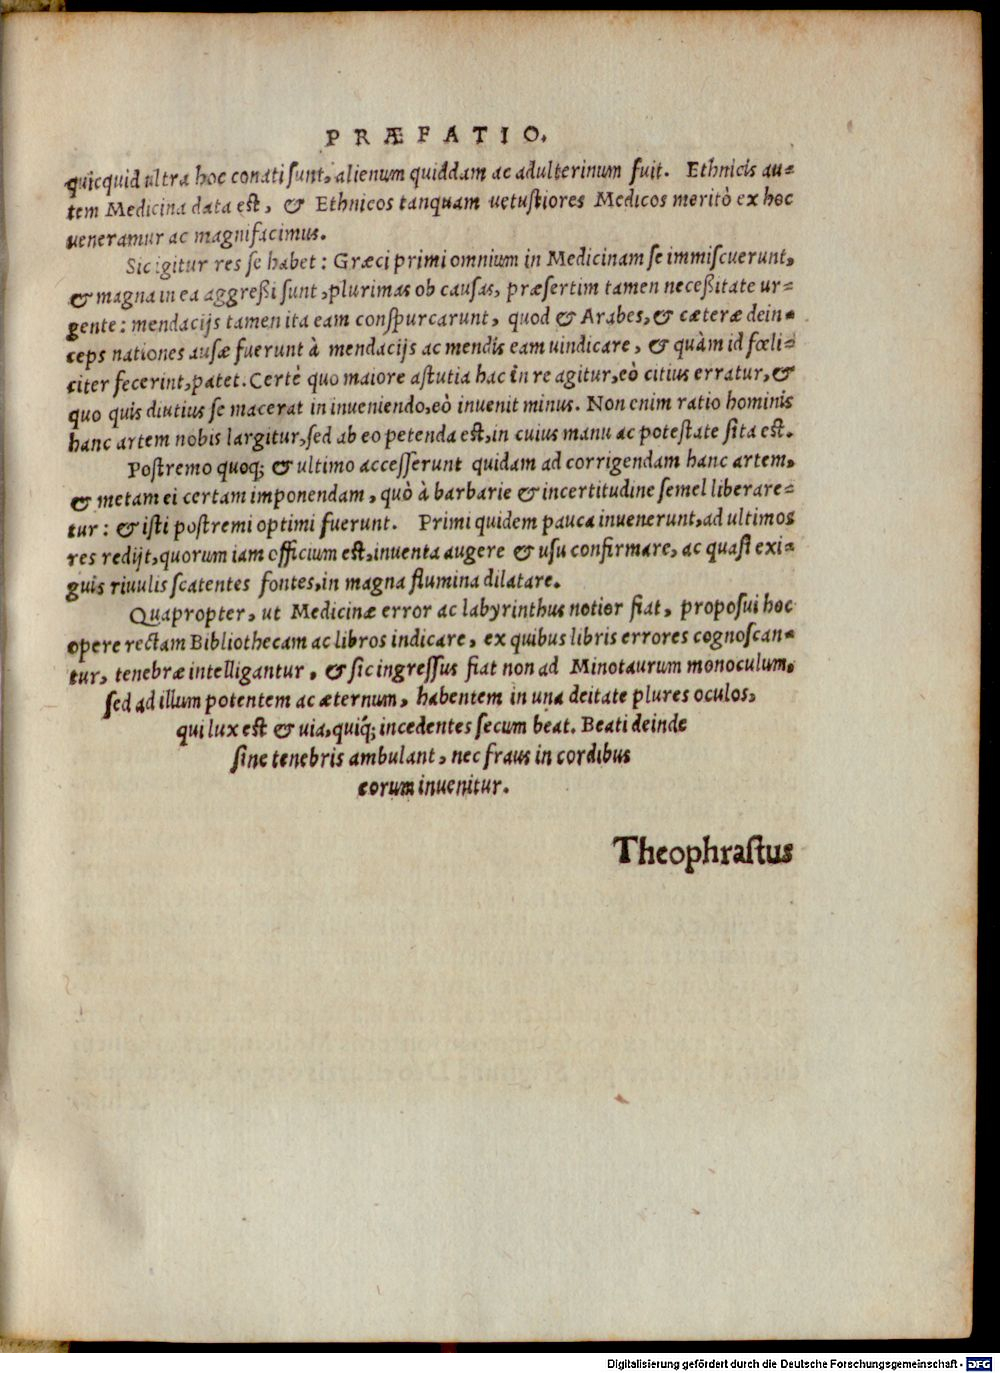 PRÆFATIO.
quicquid ultra hoc conati sunt, alienum quiddam ac adulterinum fuit. Ethnicis au-
tem Medicina data est, & Ethnicos tanquam uetustiores Medicos meritò ex hoc
ueneramur ac magnifacimus.
Sic igitur res se habet: Græci primi omnium in Medicinam se immiscuerunt,
& magna in ea aggreßi sunt, plurimas ob causas, præsertim tamen neceßitate ur-
gente: mendacijs tamen ita eam conspurcarunt, quod & Arabes, & cæteræ dein-
ceps nationes ausæ fuerunt à mendacijs ac mendis eam uindicare, & quàm id fœli-
citer fecerint, patet. Certè quo maiore astutia hac in re agitur, eò citius erratur, &
quo quis diutius se macerat in inueniendo, eò inuenit minus. Non enim ratio hominis
hanc artem nobis largitur, sed ab eo petenda est, in cuius manu ac potestate sita est.
Postremo quoq; & ultimo accesserunt quidam ad corrigendam hanc artem,
& metam ei certam imponendam, quò à barbarie & incertitudine semel liberare-
tur: & isti postremi optimi fuerunt. Primi quidem pauca inuenerunt, ad ultimos
res redijt, quorum iam officium est, inuenta augere & usu confirmare, ac quasi exi-
guis riuulis scatentes fontes, in magna flumina dilatare.
Quapropter, ut Medicinæ error ac labyrinthus notior fiat, proposui hoc
opere rectam Bibliothecam ac libros indicare, ex quibus libris errores cognoscan-
tur, tenebræ intelligantur, & sic ingressus fiat non ad Minotaurum monoculum,
sed ad illum potentem ac æternum, habentem in una deitate plures oculos,
qui lux est & uia, quiq́; incedentes secum beat. Beati deinde
sine tenebris ambulant, nec fraus in cordibus
eorum inuenitur.
Theophrastus
Digitalisierung gefördert durch die Deutsche Forschungsgemeinschaft - DFG